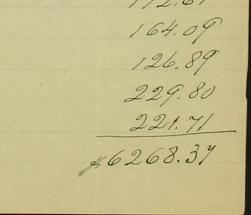 164.09
126.89
229.80
221.71
$6268.37